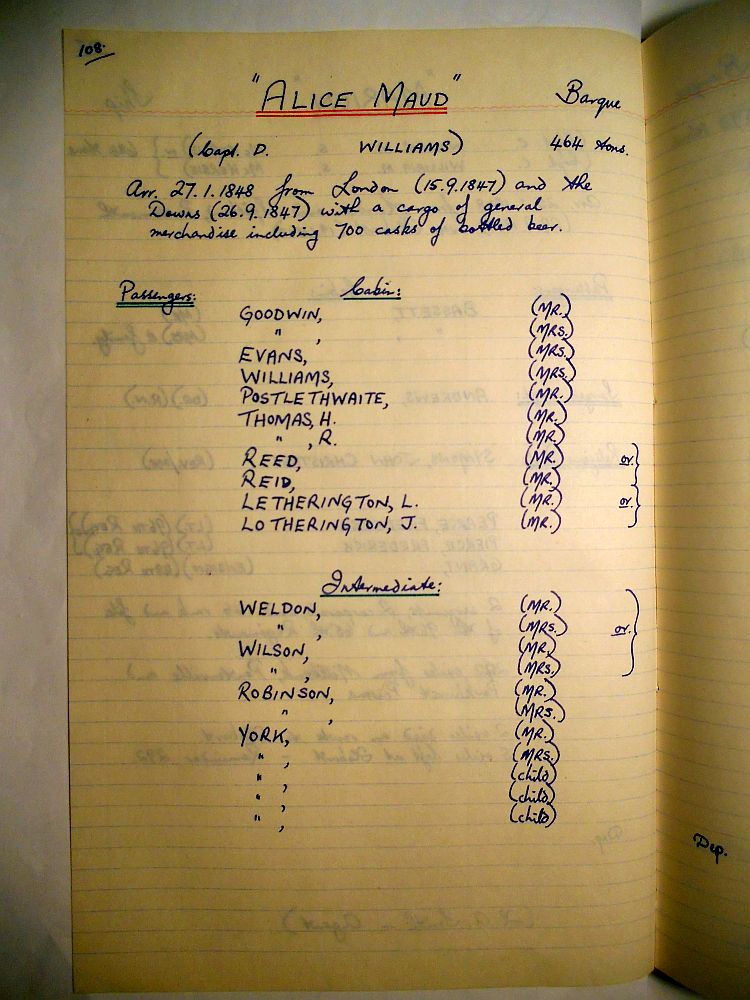 108.
"ALICE MAUD" Barque
(Capt. D. WILLIAMS) 464 tons.
Arr. 27.1.1848 from London (15.9.1847) and the
Downs (26.9.1847) with a cargo of general
merchandise including 700 casks of bottled beer.
Passengers: Cabin:
GOODWIN, (MR.)
" , (MRS.)
EVANS, (MRS.)
WILLIAMS, (MRS.)
POSTLETHWAITE, (MR.)
THOMAS, H. (MR.)
" , R. (MR.)
REED, (MR.) or
REID, (MR.)
LETHERINGTON, L. (MR.) or
LOTHERINGTON, J. (MR.)
Intermediate:
WELDON, (MR.)
" , (MRS.) or
WILSON, (MR.)
" , (MRS.)
ROBINSON, (MR.)
" , (MRS.)
YORK, (MR.)
" , (MRS.)
" , (child)
" , (child)
" , (child)
Dep.